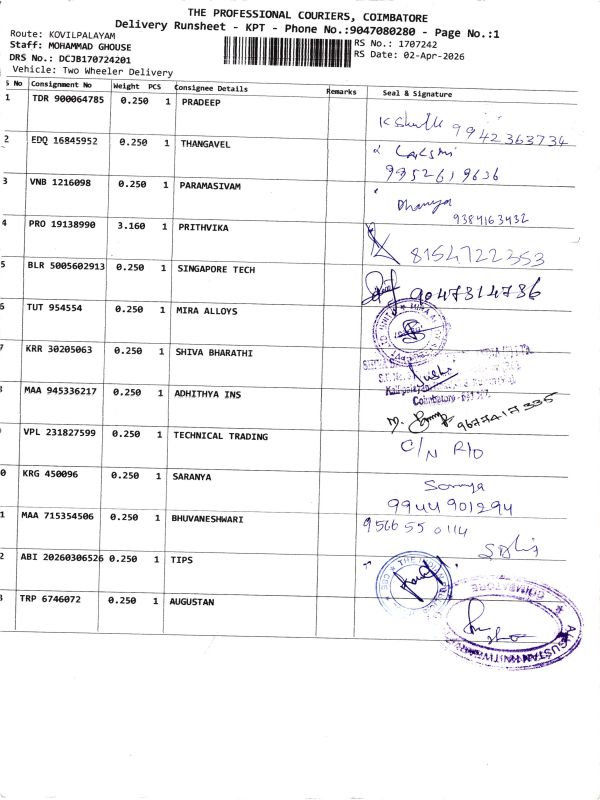 THE PROFESSIONAL COURIERS, COIMBATORE
Delivery Runsheet - KPT - Phone No.:9047080280 - Page No.:1
Route: KOVILPALAYAM
Staff: MOHAMMAD GHOUSE RS No.: 1707242
DRS No.: DCJB170724201 RS Date: 02-Apr-2026
Vehicle: Two Wheeler Delivery
S No Consignment No Weight PCS Consignee Details Remarks Seal & Signature
1 TDR 900064785 0.250 1 PRADEEP
9942363734
2 EDQ 16845952 0.250 1 THANGAVEL
Laksmi
9952619636
3 VNB 1216098 0.250 1 PARAMASIVAM
Dhanya
9384163432
4 PRO 19138990 3.160 1 PRITHVIKA
8154722353
5 BLR 5005602913 0.250 1 SINGAPORE TECH
9047314786
6 TUT 954554 0.250 1 MIRA ALLOYS
7 KRR 30205063 0.250 1 SHIVA BHARATHI
8 MAA 945336217 0.250 1 ADHITHYA INS
Coimbatore
M. 9677417335
9 VPL 231827599 0.250 1 TECHNICAL TRADING
C/N R/O
0 KRG 450096 0.250 1 SARANYA
9944901294
1 MAA 715354506 0.250 1 BHUVANESHWARI
9566550114
2 ABI 20260306526 0.250 1 TIPS
3 TRP 6746072 0.250 1 AUGUSTAN
COIMBATORE